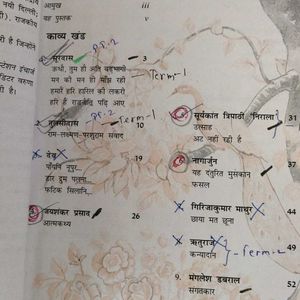 नयी दिल्ली;
राजकीय
आमुख iii
यह पुस्तक v
काव्य खंड
सूरदास 3
ऊधौ, तुम हौ अति बड़भागी
मन की मन ही माँझ रही
हमारैं हरि हारिल की लकरी
हरि हैं राजनीति पढ़ि आए
Term-1
तुलसीदास 10
राम-लक्ष्मण-परशुराम संवाद
Term-1
देव 19
पाँयनि नूपुर
डार द्रुम पलना
फटिक सिलानि
जयशंकर प्रसाद 26
आत्मकथ्य
सूर्यकांत त्रिपाठी 'निराला' 31
उत्साह
अट नहीं रही है
नागार्जुन 37
यह दंतुरित मुसकान
फसल
गिरिजाकुमार माथुर 44
छाया मत छूना
ऋतुराज 49
कन्यादान
Term-2
9. मंगलेश डबराल 52
संगतकार